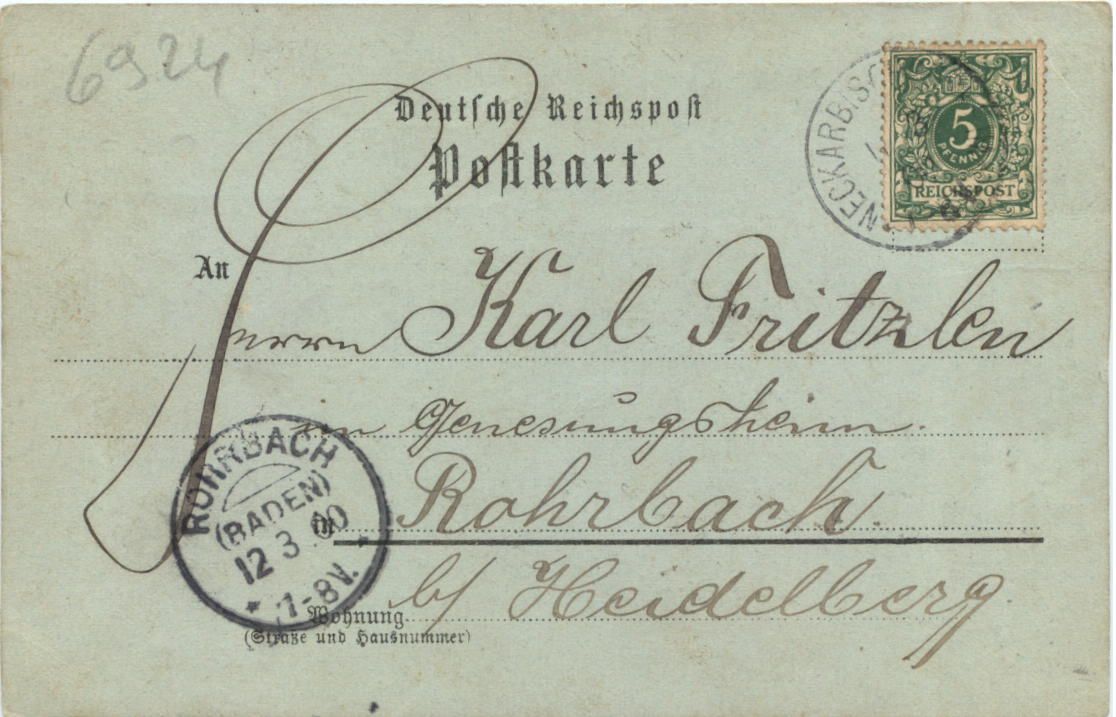 6924
Deutsche Reichspost
Postkarte
NECKARBISC
5
PFENNIG
REICHSPOST
An
Herrn Karl Fritzlen
im Genesungsheim.
in Rohrbach.
b/ Heidelberg.
ROHRBACH
(BADEN)
12 3 00
* 7-8V. *
Wohnung
(Straße und Hausnummer)